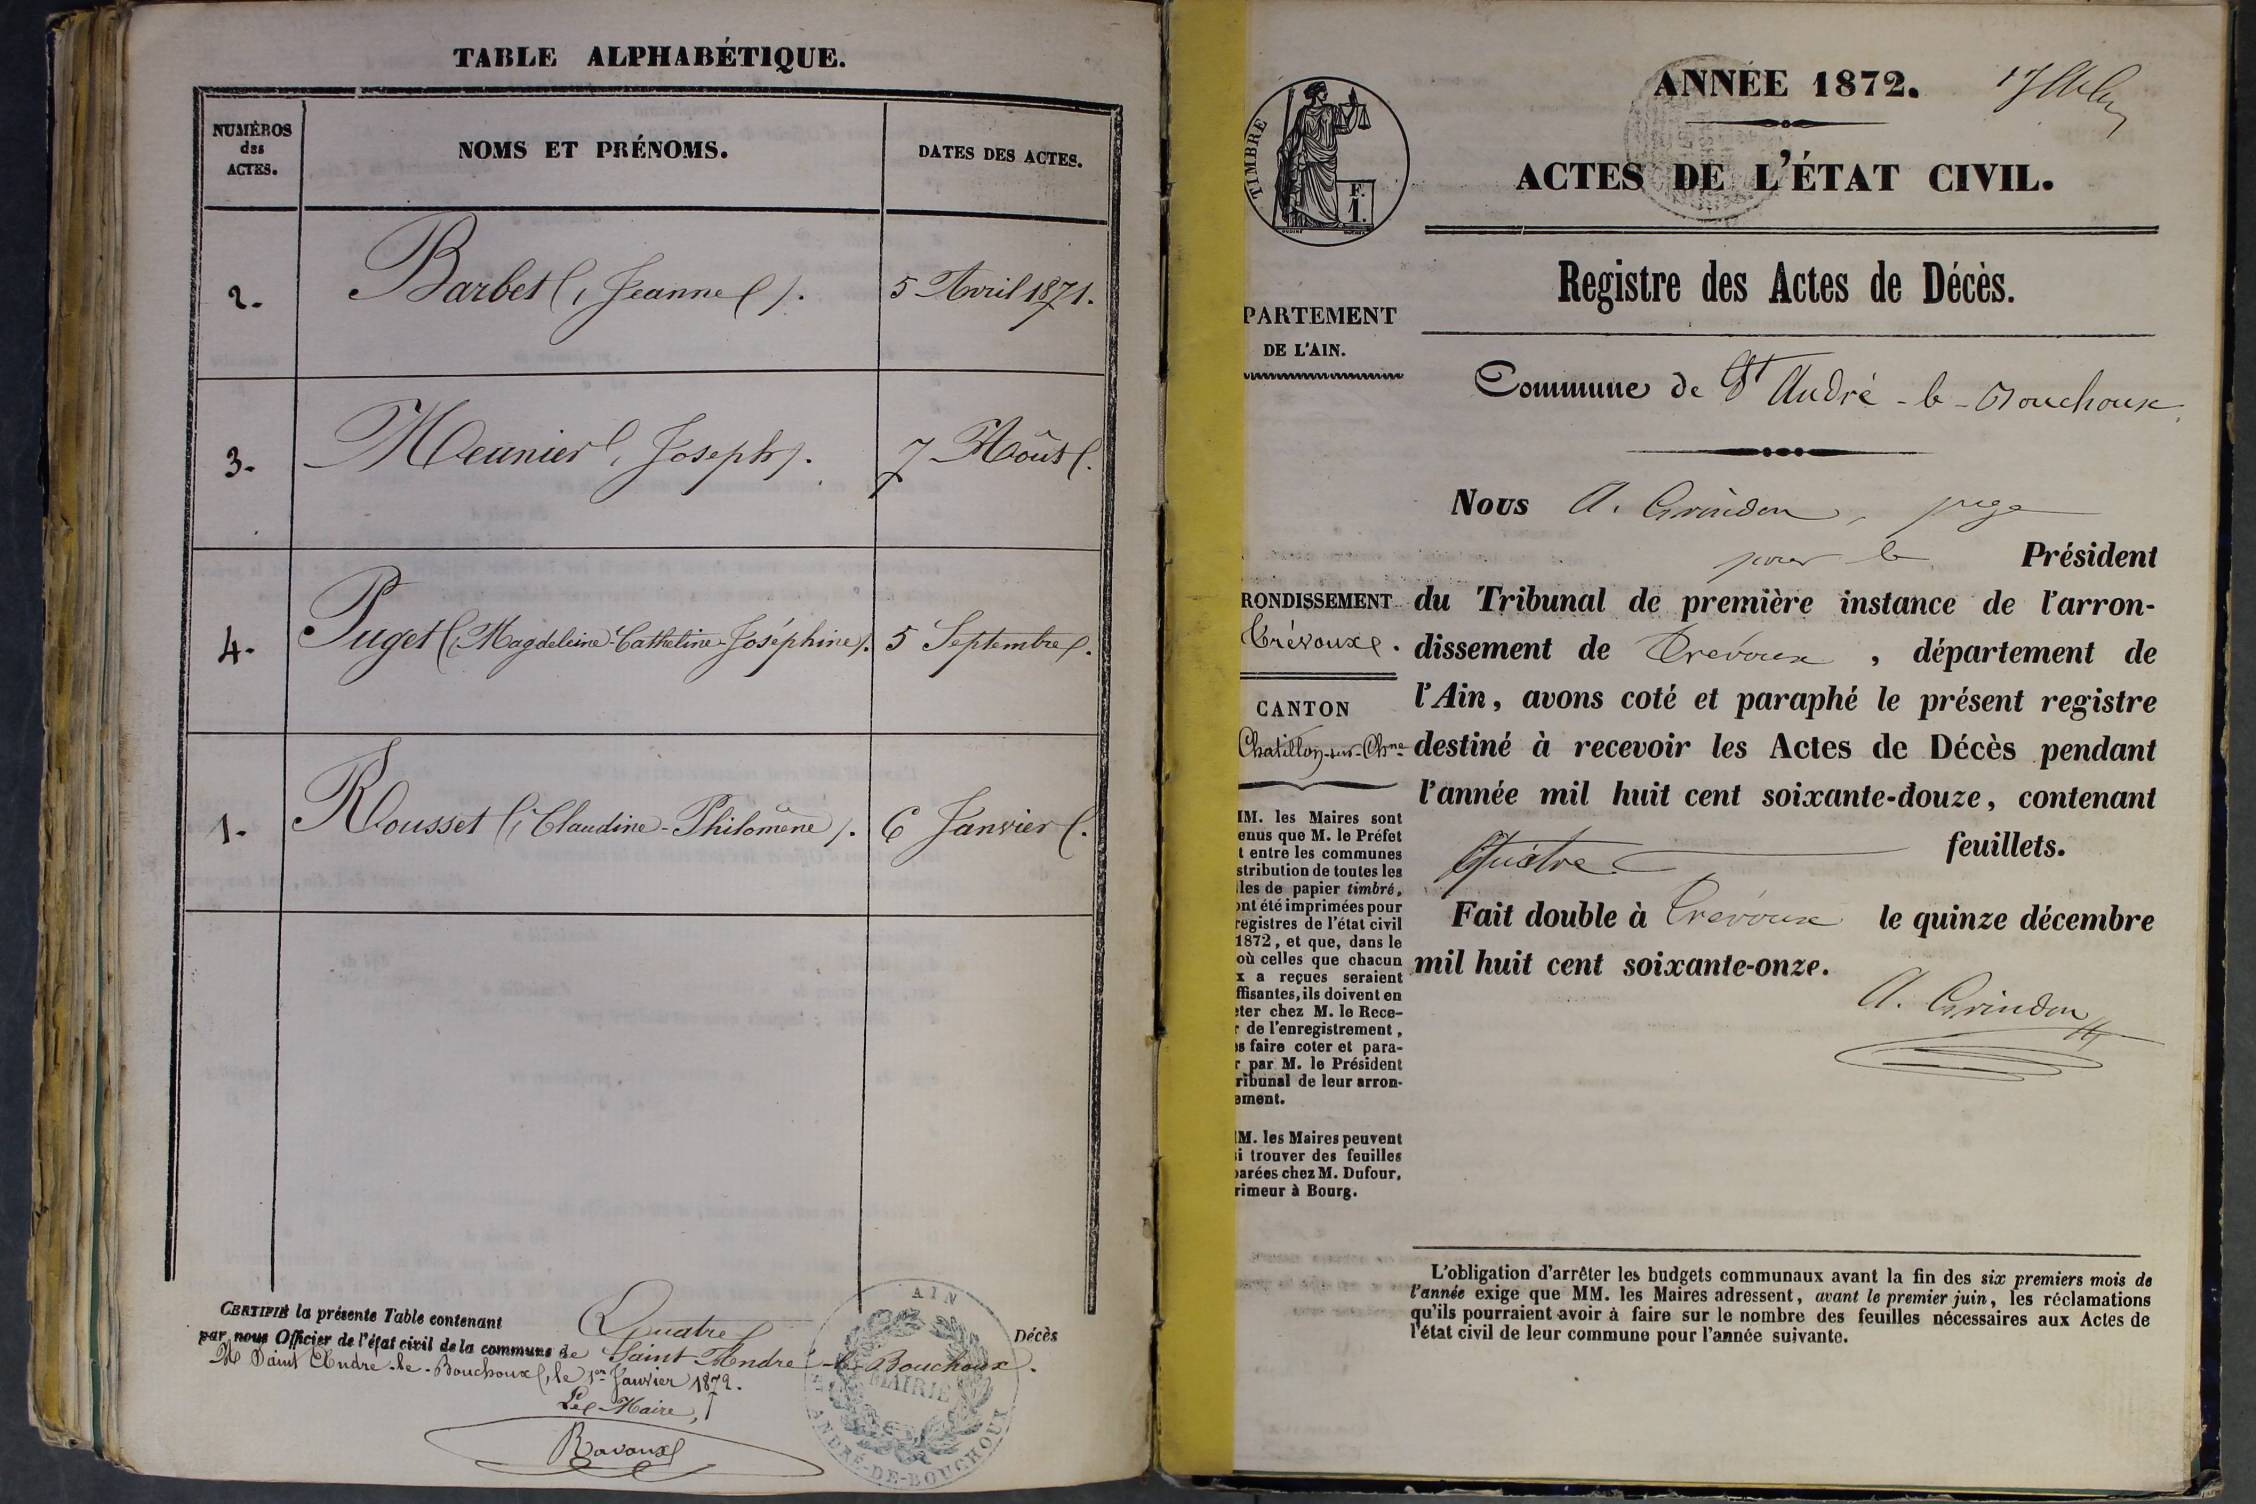 TABLE ALPHABÉTIQUE.
NUMÉROS des ACTES.
NOMS ET PRÉNOMS.
DATES DES ACTES.
2. Barbet (Jeanne). 5 Avril 1871.
3. Meunier, Joseph. 7 Août.
4. Puget (Magdeleine-Catherine-Joséphine). 5 Septembre.
1. Rousset (Claudine-Philomène). 6 Janvier.
CERTIFIÉ la présente Table contenant Quatre Décès
par nous Officier de l'état civil de la commune de Saint André-le-Bouchoux.
A Saint André-le-Bouchoux, le 1er Janvier 1872.
Le Maire,
Ravoux
AIN
MAIRIE
ANDRÉ-DE-BOUCHOUX
TIMBRE
F.
1.
ANNÉE 1872.
ACTES DE L'ÉTAT CIVIL.
Registre des Actes de Décès.
PARTEMENT
DE L'AIN.
RONDISSEMENT
Trévoux.
CANTON
Chatillon-sur-Chne
IM. les Maires sont
enus que M. le Préfet
t entre les communes
stribution de toutes les
les de papier timbré,
ont été imprimées pour
registres de l'état civil
1872, et que, dans le
où celles que chacun
x a reçues seraient
ffisantes, ils doivent en
eter chez M. le Rece-
r de l'enregistrement,
s faire coter et para-
r par M. le Président
ribunal de leur arron-
ement.
IM. les Maires peuvent
si trouver des feuilles
parées chez M. Dufour,
rimeur à Bourg.
Commune de St André-le-Bouchoux
Nous A. Grindon, juge
pour le Président
du Tribunal de première instance de l'arron-
dissement de Trévoux, département de
l'Ain, avons coté et paraphé le présent registre
destiné à recevoir les Actes de Décès pendant
l'année mil huit cent soixante-douze, contenant
Quatre feuillets.
Fait double à Trévoux le quinze décembre
mil huit cent soixante-onze.
A. Grindon
L'obligation d'arrêter les budgets communaux avant la fin des six premiers mois de
l'année exige que MM. les Maires adressent, avant le premier juin, les réclamations
qu'ils pourraient avoir à faire sur le nombre des feuilles nécessaires aux Actes de
l'état civil de leur commune pour l'année suivante.